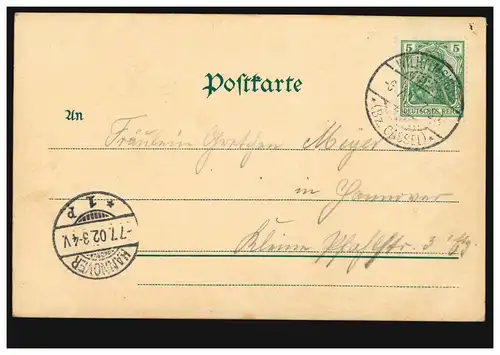 5 5
DEUTSCHES REICH
WILHELMSH
(BZ. CASSEL)
Postkarte
An
Fräulein Gretchen Meyer
in Hannover
Kleine Pfahlstr. 3
* 1 P
-7.7.02.3-4V.
HANNOVER